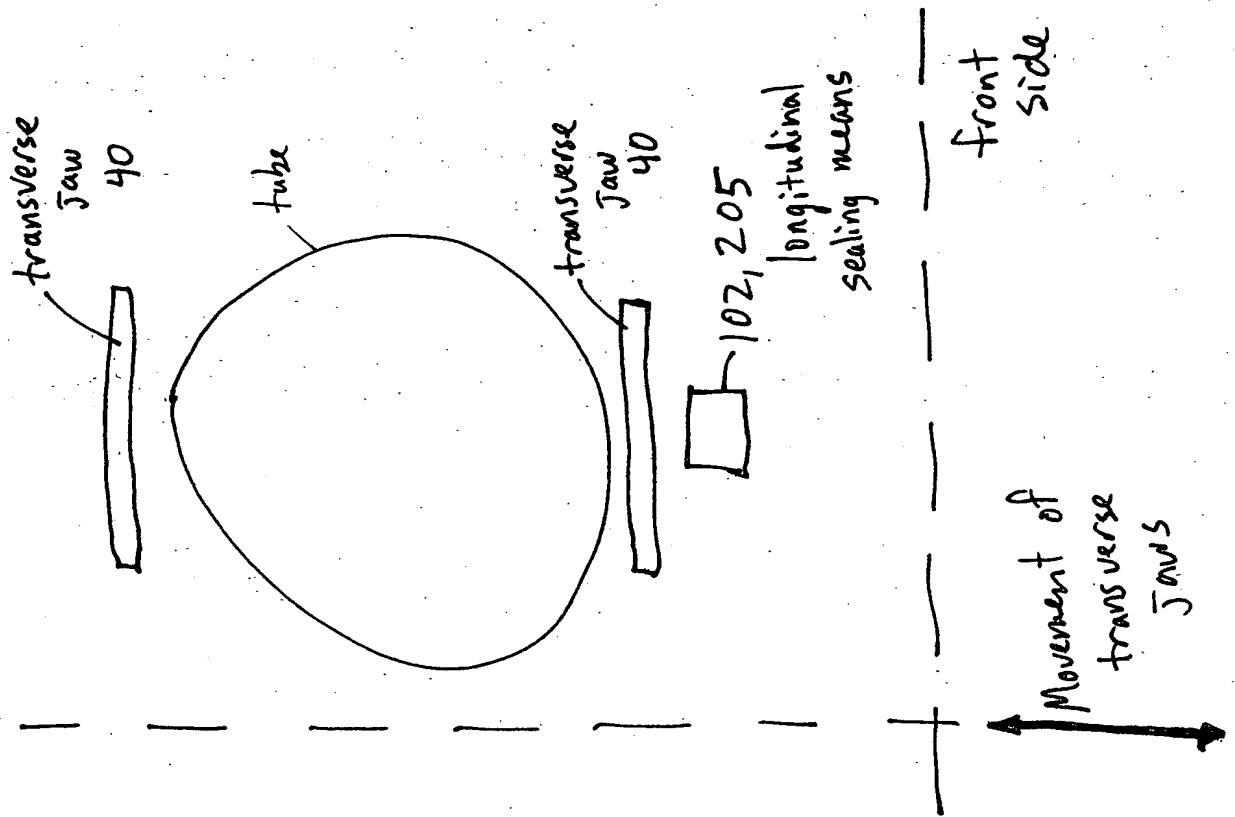 transverse
Jaw
40
tube
transverse
Jaw
40
102, 205
longitudinal
sealing means
front
side
Movement of
transverse
Jaws